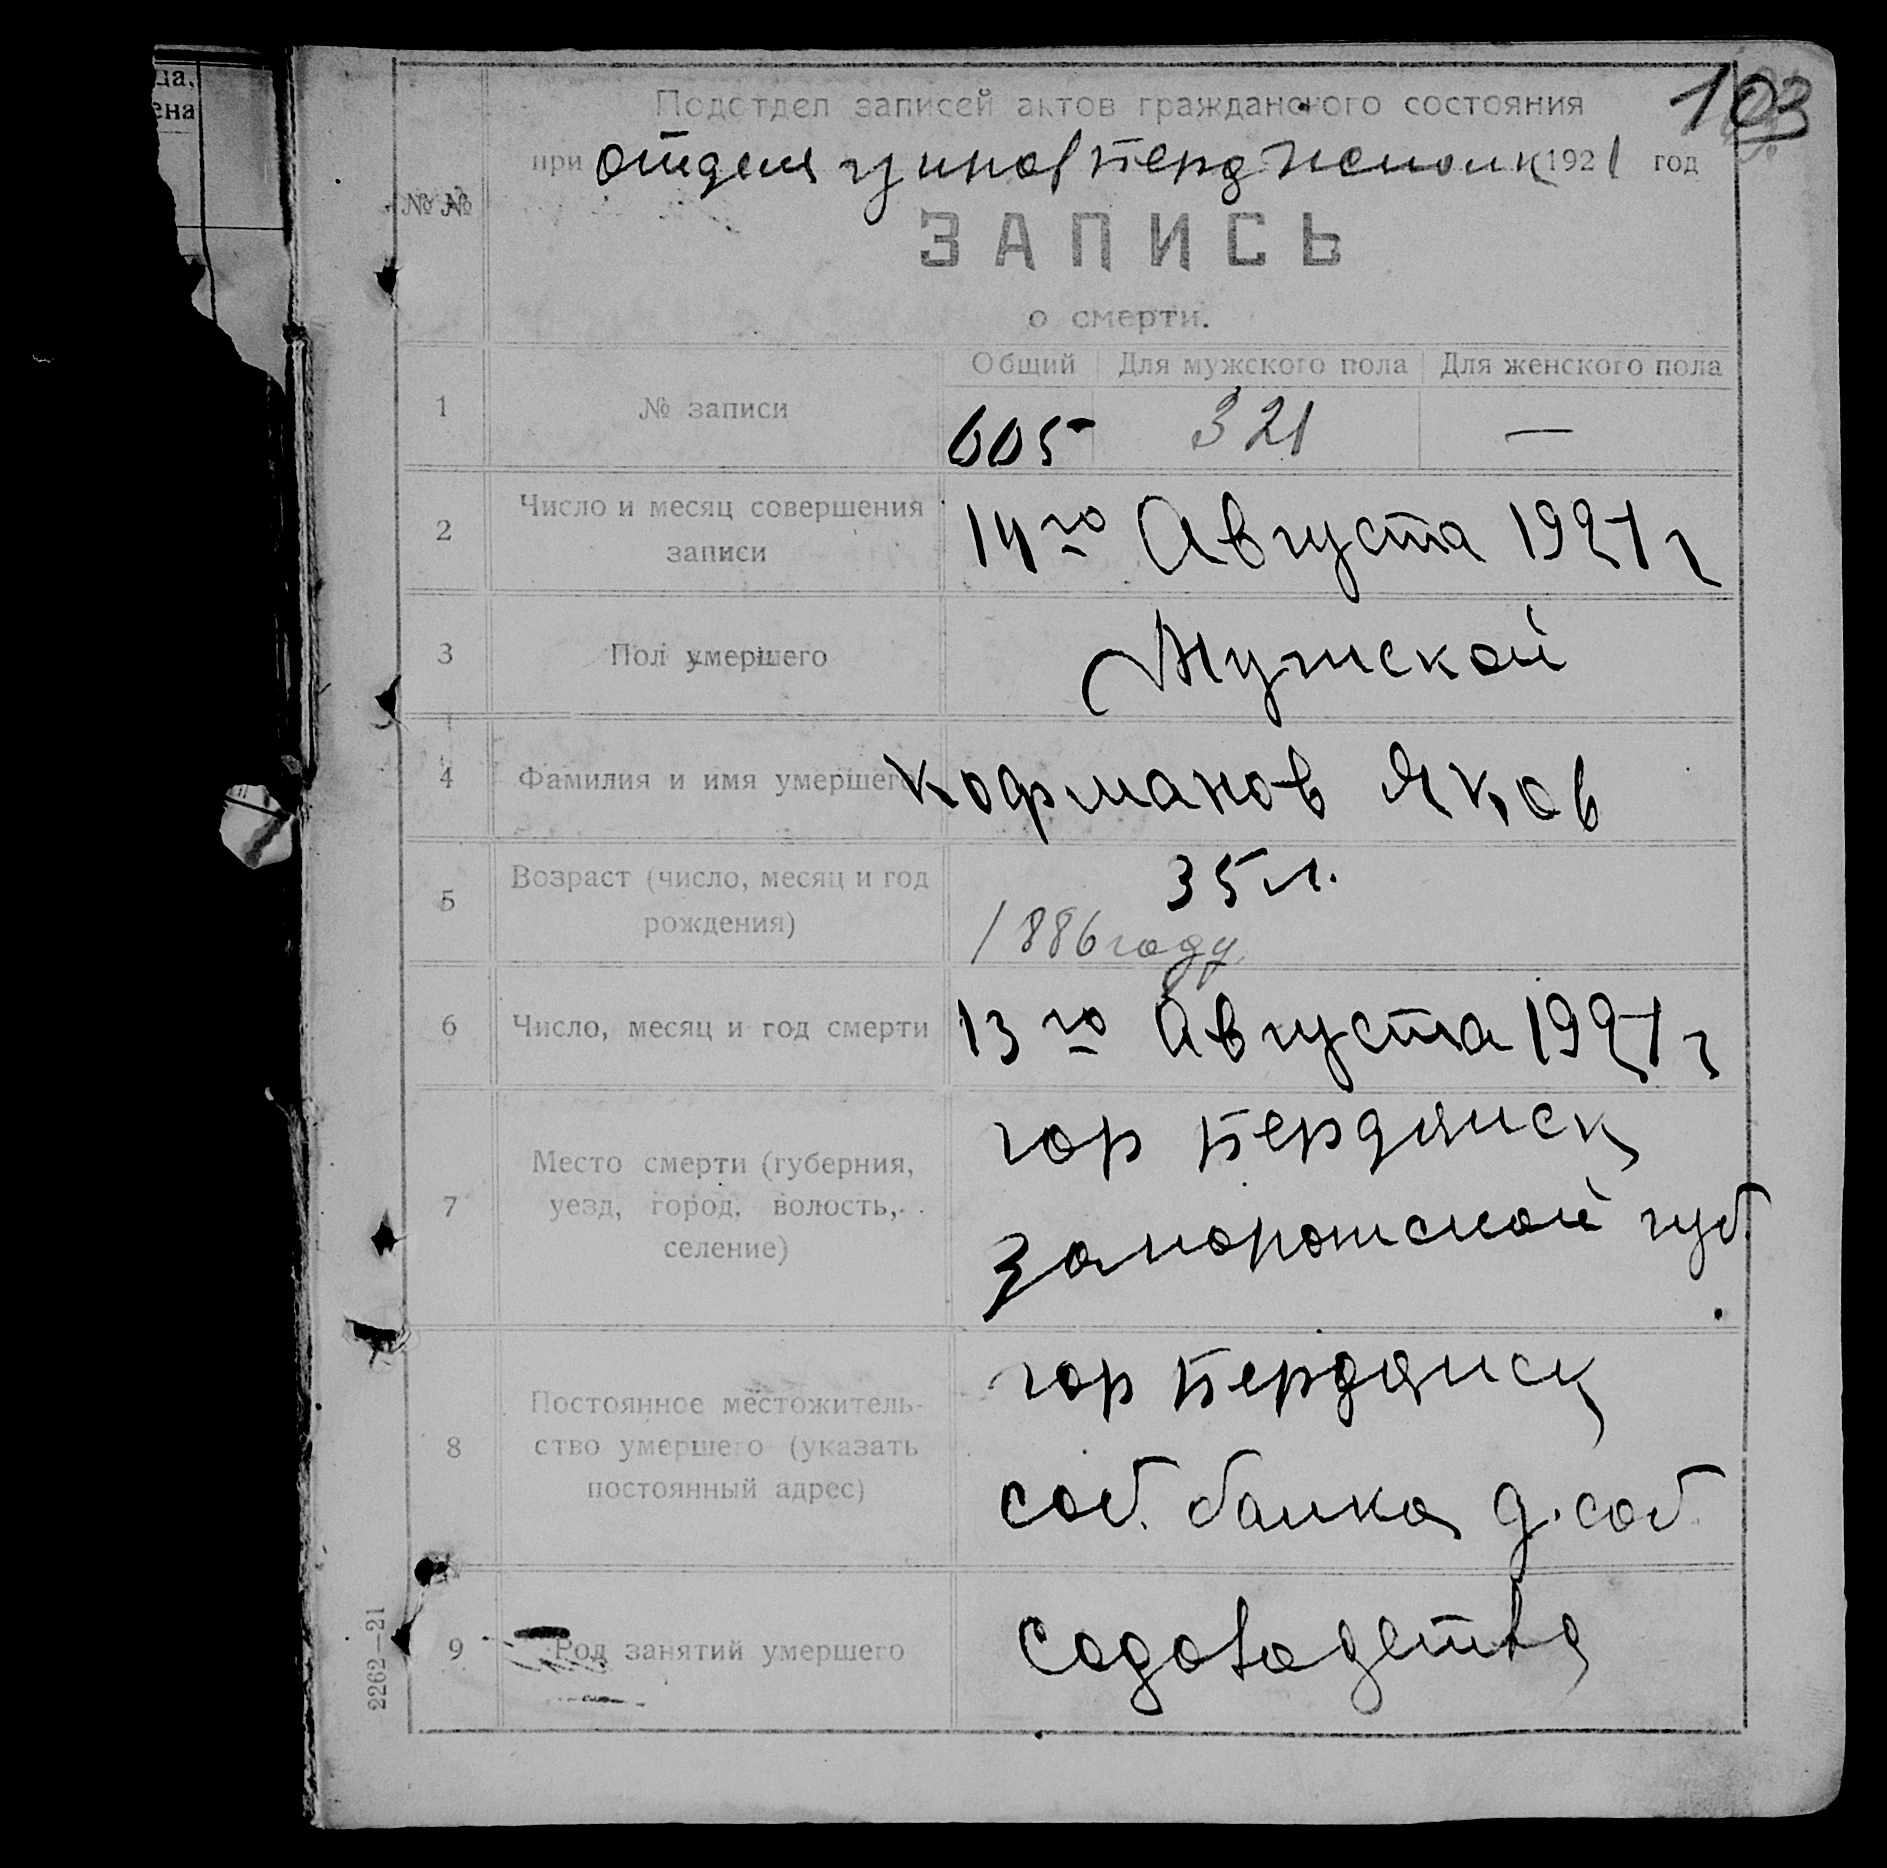 ца,
ена
103
Подотдел записей актов гражданского состояния
при отделе управ Берд Исполк 1921 год
№ №
ЗАПИСЬ
о смерти.
Общий Для мужского пола Для женского пола
1 № записи 605 321 —
2 Число и месяц совершения
записи
14го Августа 1921 г
3 Пол умершего Мужской
4 Фамилия и имя умершего Кофманов Яков
5 Возраст (число, месяц и год
рождения)
35 л.
1886 году
6 Число, месяц и год смерти 13го Августа 1921 г
7 Место смерти (губерния,
уезд, город, волость,
селение)
гор Бердянск
Запорожской губ.
8 Постоянное местожитель-
ство умершего (указать
постоянный адрес)
гор Бердянск
соб. балка д. соб
9 Род занятий умершего
2262—21